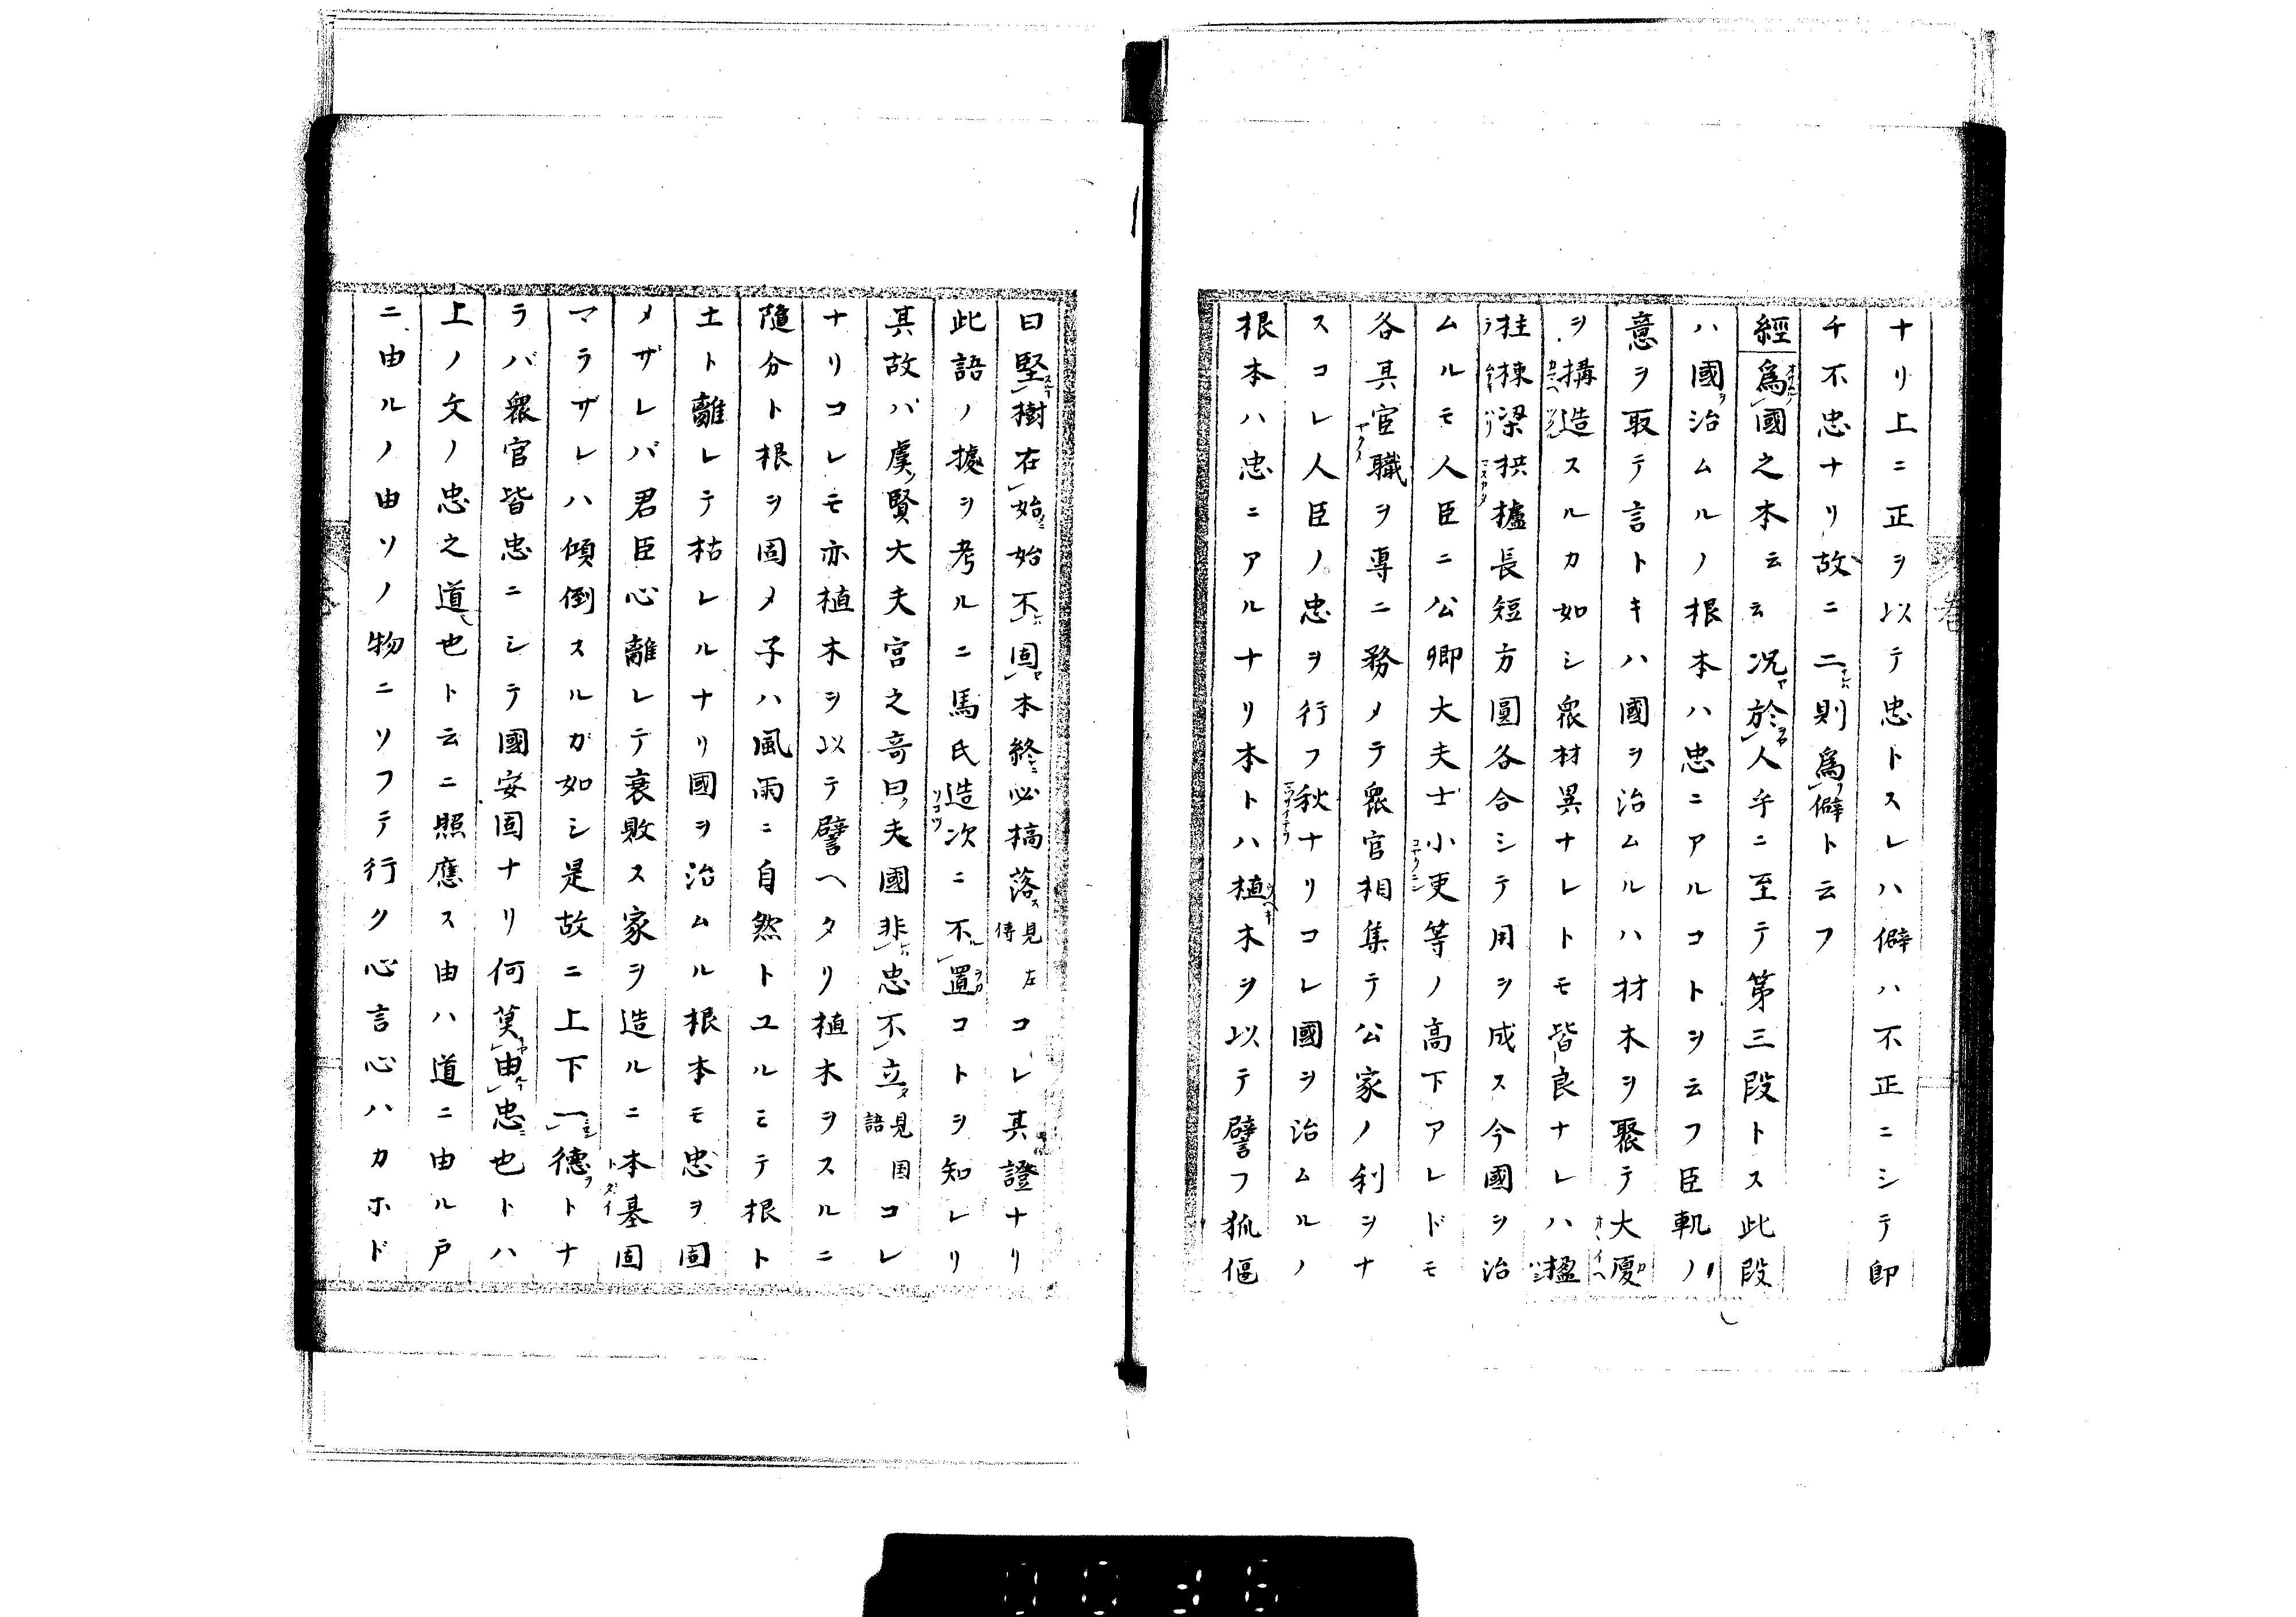 ナリ上ニ正ヲ以テ忠トスレハ僻ハ不正ニシテ即
チ不忠ナリ故ニ二則為僻ト云フ
經為國之本云云況於人乎ニ至テ第三段トス此段
ハ國治ムルノ根本ハ忠ニアルコトヲ云フ臣軌ノ
意ヲ取テ言トキハ國ヲ治ムルハ材木ヲ聚テ大廈
ヲ搆造スルカ如シ衆材異ナレトモ皆良ナレハ楹
柱棟梁拱櫨長短方圓各合シテ用ヲ成ス今國ヲ治
ムルモ人臣ニ公卿大夫士小吏等ノ高下アレドモ
各其官職ヲ專ニ務メテ衆官相集テ公家ノ利ヲナ
スコレ人臣ノ忠ヲ行フ秋ナリコレ國ヲ治ムルノ
根本ハ忠ニアルナリ本トハ植木ヲ以テ譬フ狐偃
曰堅樹在始始不固本終必槁落見左傳コレ其證ナリ
此語ノ據ヲ考ルニ馬氏造次ニ不置コトヲ知レリ
其故バ虞賢大夫宮之竒曰夫國非忠不立見国語コレ
ナリコレモ亦植木ヲ以テ譬ヘタリ植木ヲスルニ
隨分ト根ヲ固メ子ハ風雨ニ自然トユルミテ根ト
土ト離レテ枯レルナリ國ヲ治ムル根本モ忠ヲ固
メザレバ君臣心離レテ衰敗ス家ヲ造ルニ本基固
マラザレハ傾倒スルガ如シ是故ニ上下一德トナ
ラバ衆官皆忠ニシテ國安固ナリ何莫由忠也トハ
上ノ文ノ忠之道也ト云ニ照應ス由ハ道ニ由ル戸
ニ由ルノ由ソノ物ニソフテ行ク心言心ハカホド